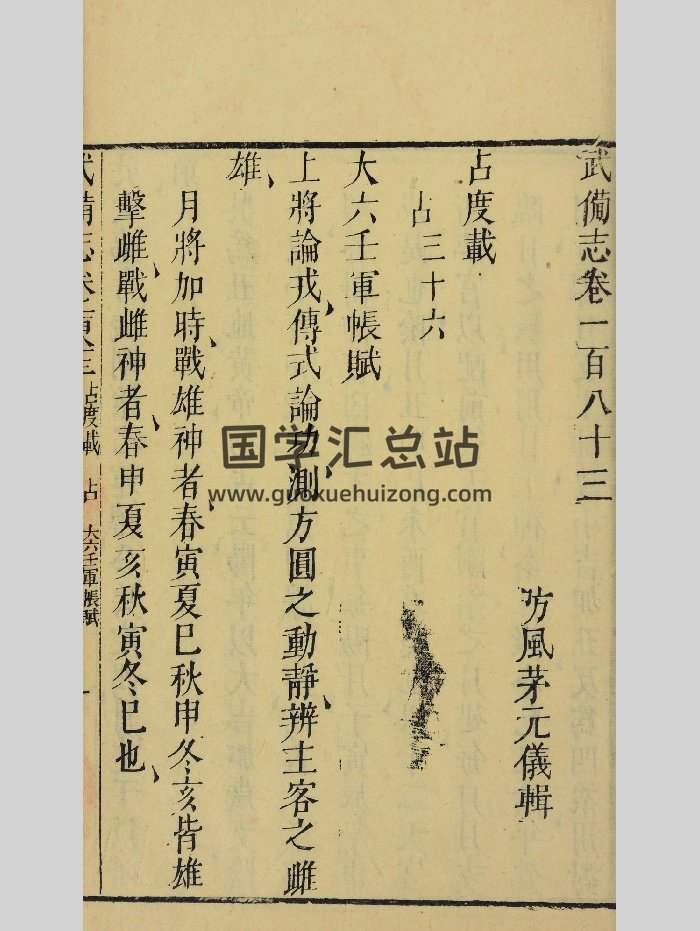 武備志卷一百八十三
防風茅元儀輯
占度載
占三十六
大六壬軍帳賦
上將論戎傳式論功測方圓之動靜辨主客之雌
雄
月將加時戰雄神者春寅夏巳秋申冬亥皆雄
擊雌戰雌神者春申夏亥秋寅冬巳也
武備志卷 占度載 占 大六壬軍帳賦 一
国学汇总站
www.guoxuehuizong.com